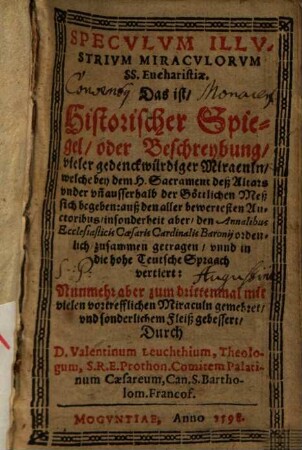 SPECVLVM ILLV-
STRIVM MIRACVLORVM
SS. Eucharistiæ.
Das ist/
Historischer Spie-
gel/ oder Beschreybung/
vieler gedenckwürdiger Miraculn/
welche bey dem H. Sacrament deß Altars
vnder vñ ausserhalb der Göttlichen Meß
sich begeben: auß den aller bewertesten Au-
ctoribus/ insonderheit aber/ den Annalibus
Ecclesiasticis Cæsaris Cardinalis Baronij orden-
lich zusammen getragen/ vnnd in
die hohe Teutsche Spraach
vertiert:
Augustin
Nunmehr aber zum drittenmal mit
vielen vortrefflichen Miraculn gemehret/
vnd sonderlichem Fleiß gebessert/
Durch
D. Valentinum Leuchthium, Theolo-
gum, S.R.E. Prothon. Comitem Palati-
num Cæsareum, Can. S. Bartho-
lom. Francof.
MOGVNTIAE, Anno 1598.